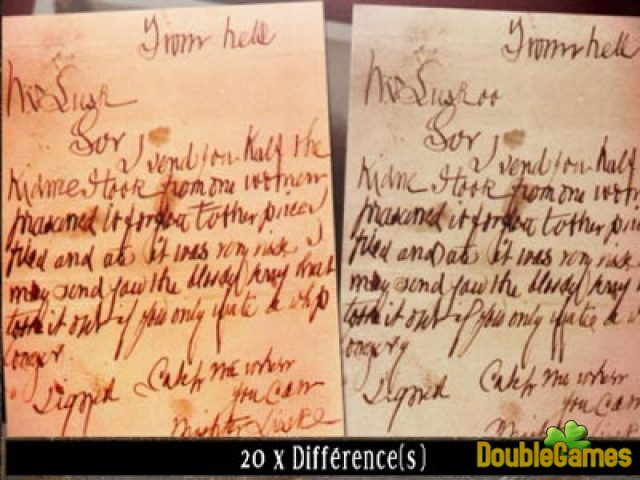 From hell
Mr Lusk
Sor
I send you half the
Kidne I took from one women
prasarved it for you tother piece I
fried and ate it was very nise I
may send you the bloody knif that
took it out if you only wate a whil
longer
Signed Catch me when
you can
Mishter Lusk
From hell
Mr Luskoo
Sor
I send you half
Kidne I took from one wom
prasarved it for you tother pie
fried and ate it was very nise
may send you the bloody knif
took it out if you only wate a w
longery
Signed Catch me when
you can
Mishter Lusk
20 x Différence(s)
DoubleGames